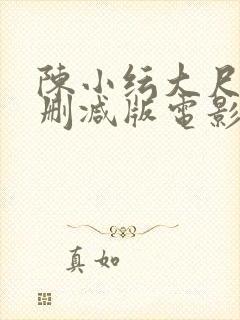 陳小纭大尺
刪減版電影
真如